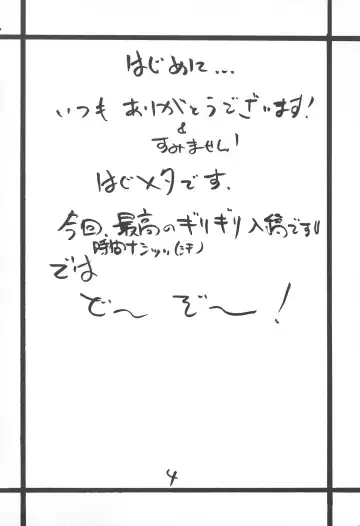 はじめに...
いつも ありがとうでございます!
&
すみません!
はじメタです.
今回、最高のギリギリ入稿です!!
時間ナシッッ(汗)
では
ど〜 ぞ〜 !
4